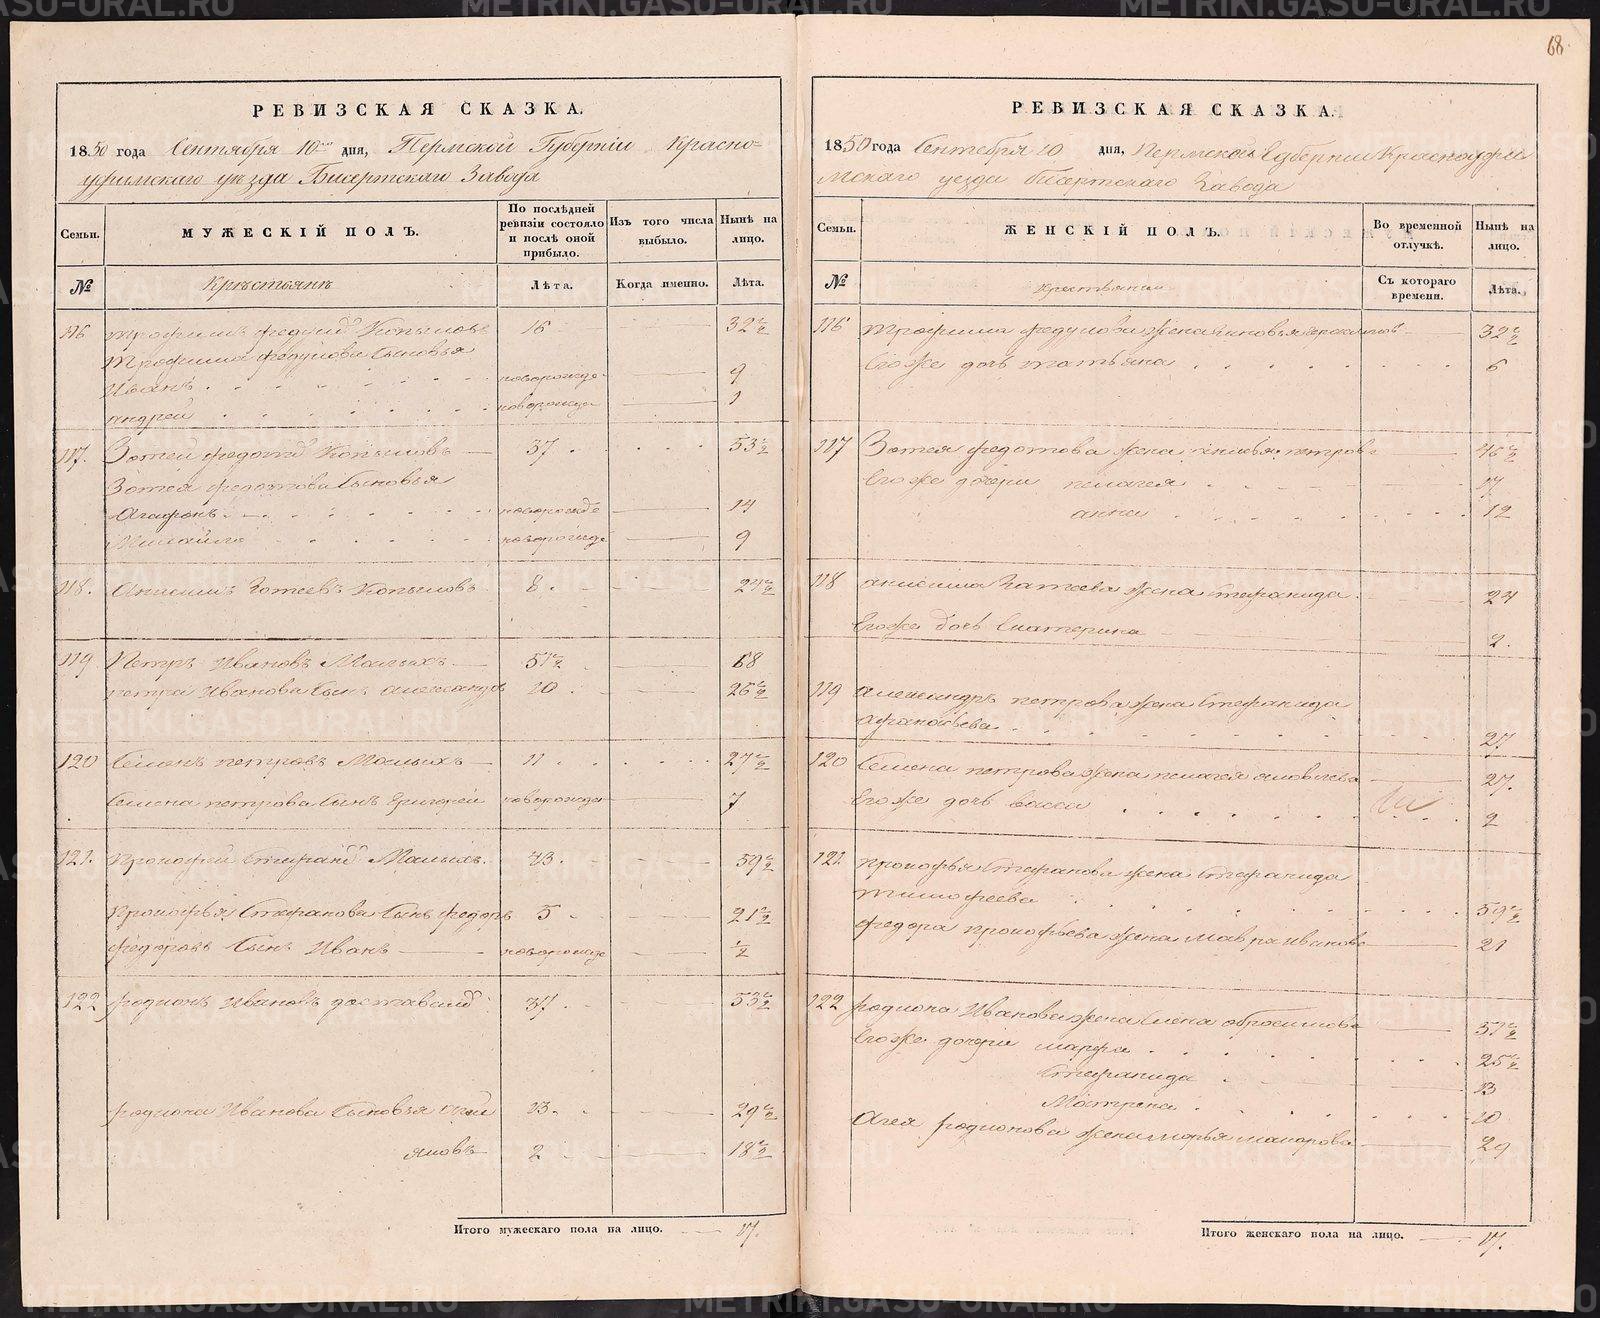 68.
РЕВИЗСКАЯ СКАЗКА.
1850 года Сентября 10го дня, Пермской Губерніи Красно-
уфимскаго уезда Бисертскаго Завода
Семьи. МУЖЕСКІЙ ПОЛЪ. По послѣдней ревизіи состояло и послѣ оной прибыло. Изъ того числа выбыло. Нынѣ на лицо.
№ Крестьянъ Лѣта. Когда именно. Лѣта.
116 Трофимъ Федуловъ Копыловъ 16 32 ½
Трофима Федулова Сыновья
Иванъ новорожде 9
андрей новорожде 1
117. Зотей Федотовъ Копыловъ 37 53 ½
Зотея Федотова Сыновья
Агафонъ новорожде 14
Михайло новорожде 9
118. Анисимъ Зотеевъ Копыловъ 8 24 ½
119 Петръ Ивановъ Малыхъ 51 ½ 68
петра Иванова Сынъ александръ 10 26 ½
120 Семенъ петровъ Малыхъ 11 27 ½
Семена петрова Сынъ Григорей новорожде 7
121. Прокофей Стефановъ Малыхъ 43 59 ½
Прокофья Стефанова Сынъ федоръ 5 21 ½
федоровъ Сынъ Иванъ новорожде ½
122 Родионъ Ивановъ 37 53 ½
Родиона Иванова Сыновья Агей 13 29 ½
яковъ 2 18 ½
Итого мужескаго пола на лицо. 17.
РЕВИЗСКАЯ СКАЗКА.
1850 года Сентебря 10 дня, Пермской Губернии Красноуфи
мскаго уезда бисертскаго Завода
Семьи. ЖЕНСКІЙ ПОЛЪ. Во временной отлучкѣ. Нынѣ на лицо.
№ Крестьянъ Съ котораго времени. Лѣта.
116 Трофима Федулова жена Зиновья 32 ½
Егоже дочь татьяна 6
117 Зотея Федотова жена петрова 46 ½
Егоже дочери пелагея 17
анна 12
118 анисима Затеева жена Стефанида 24
Егоже дочь Екатерина 2.
119 Александръ петрова жена Стефанида
афанасьева 27
120 Семена петрова жена пелагея яковлева 27.
Егоже дочь васса 2
121 прокофья Стефанова жена Стефанида
тимофеева 59 ½
федора прокофьева жена мавра иванова 21
122 Родиона Иванова жена Елена обросимова 51 ½
Егоже дочери марфа 25 ½
Стефанида 13
Матрена 10
Агея Родионова жена марья макарова 29
Итого женскаго пола на лицо. 17.